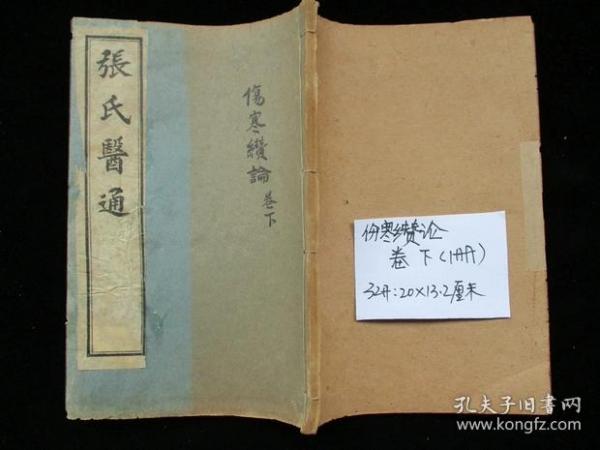 張氏醫通
傷寒纘論 卷下
伤寒缵论
卷下(1册)
32开:20×13.2厘米
孔夫子旧书网
www.kongfz.com